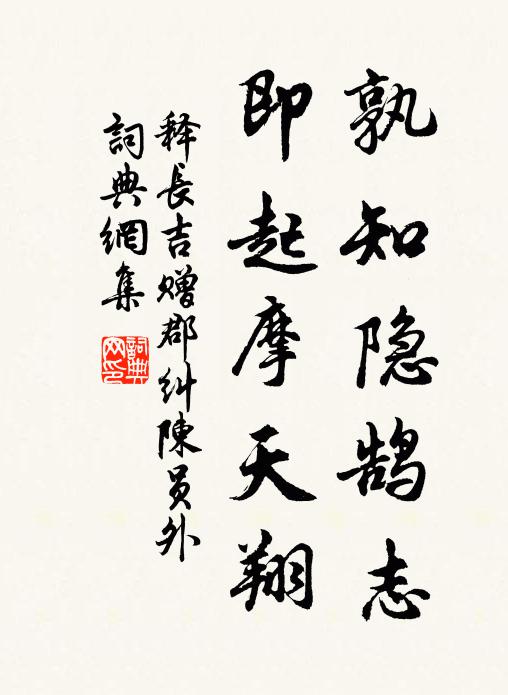 孰知隐鹄志
即起摩天翔
释長吉赠郡糾陳員外
詞典網集
詞典網印